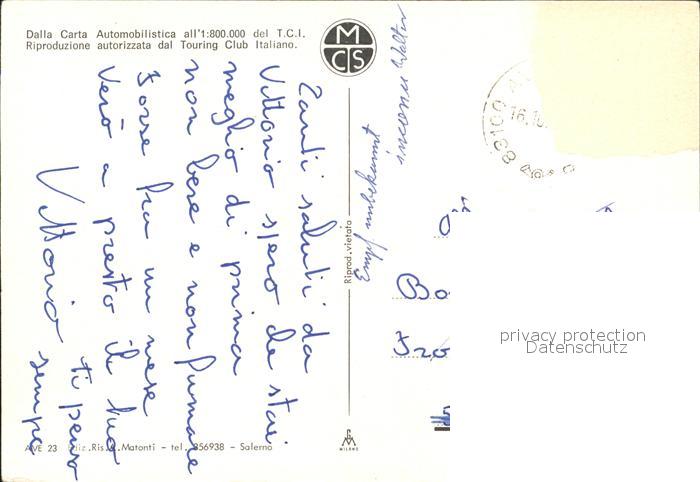 Dalla Carta Automobilistica all'1:800.000 del T.C.I.
Riproduzione autorizzata dal Touring Club Italiano.
MCS
Tanti saluti da
Vittorio spero che stai
meglio di prima
non bere e non fumare
Forse fra un mese
verò a presto il tuo
Vittorio ti penso
sempre
Riprod. vietata
Empf unbekannt
Walter
88100
16.10.
Bo
privacy protection
Datenschutz
AVE 23 Ediz. Ris. Matonti - tel. 356938 - Salerno
MILANO